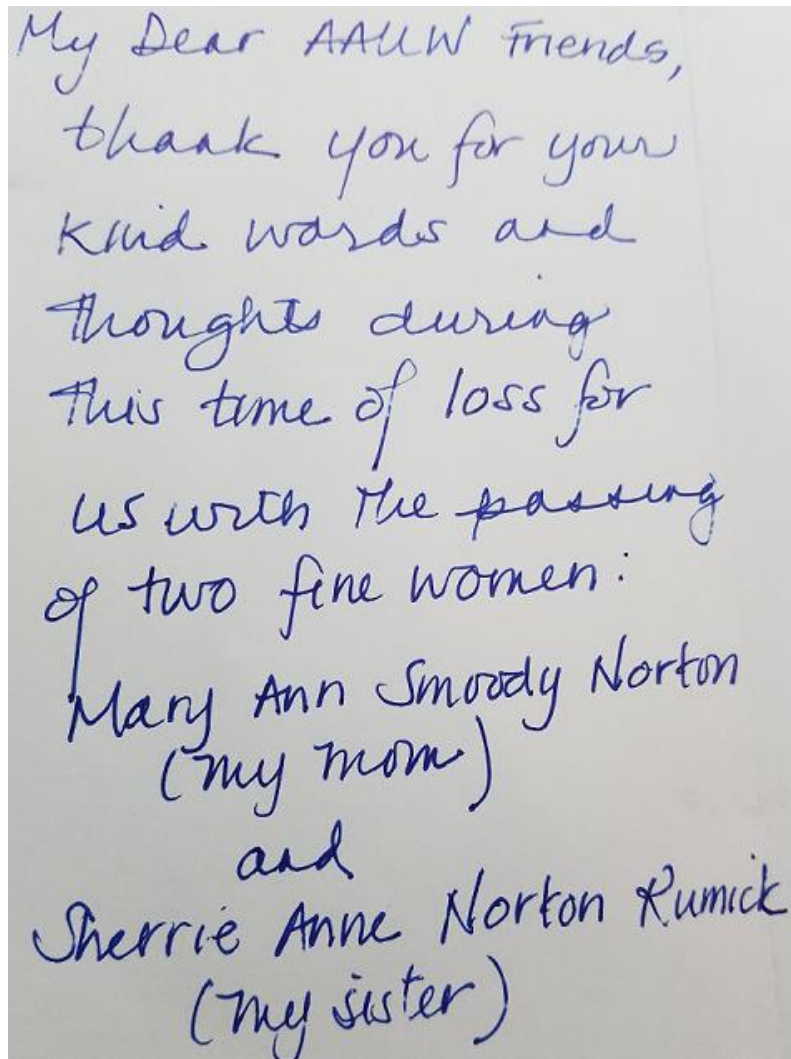 My Dear AAUW Friends,
thank you for your
kind words and
thoughts during
this time of loss for
us with the passing
of two fine women:
Mary Ann Smoody Norton
(my mom)
and
Sherrie Anne Norton Rumick
(my sister)